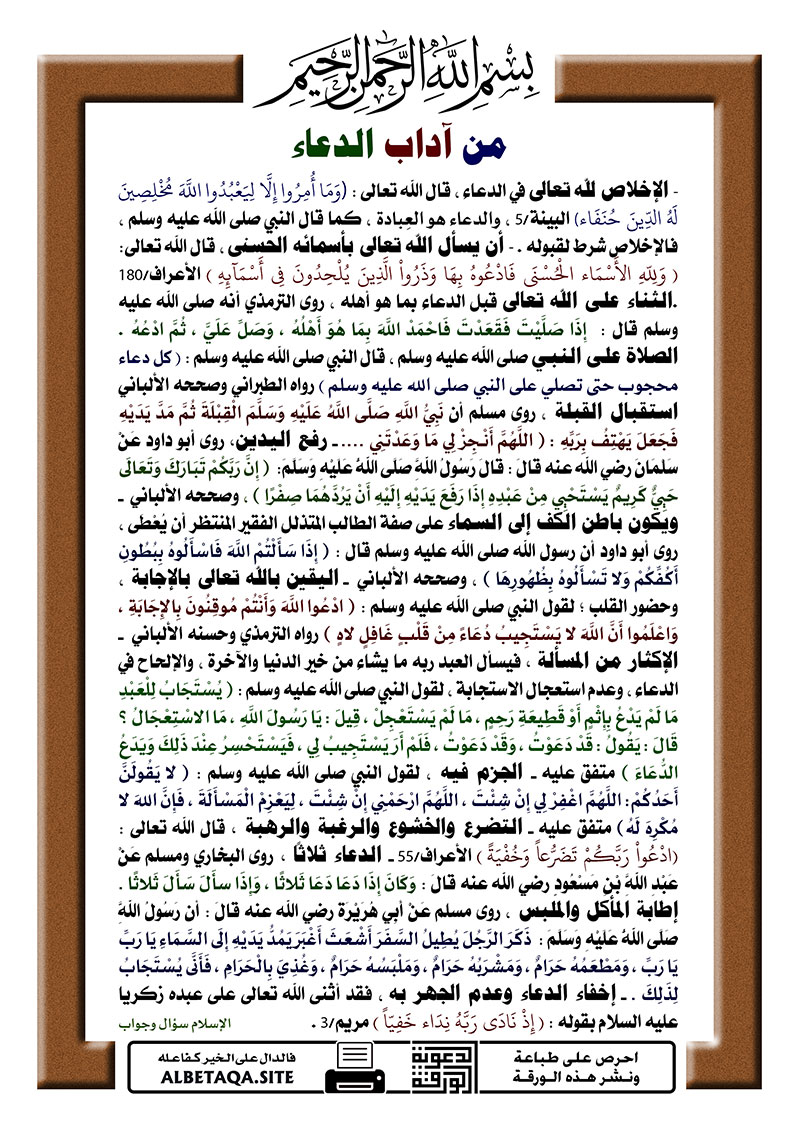 بِسْمِ اللَّهِ الرَّحْمَنِ الرَّحِيمِ
من آداب الدعاء
- الإخلاص لله تعالى في الدعاء ، قال الله تعالى : (وَمَا أُمِرُوا إِلَّا لِيَعْبُدُوا اللَّهَ مُخْلِصِينَ
لَهُ الدِّينَ حُنَفَاء) البينة/5 ، والدعاء هو العِبادة ، كما قال النبي صلى الله عليه وسلم ،
فالإخلاص شرط لقبوله . - أن يسأل الله تعالى بأسمائه الحسنى ، قال الله تعالى:
( وَلِلّهِ الأَسْمَاء الْحُسْنَى فَادْعُوهُ بِهَا وَذَرُواْ الَّذِينَ يُلْحِدُونَ فِي أَسْمَآئِهِ ) الأعراف/180
.الثناء على الله تعالى قبل الدعاء بما هو أهله ، روى الترمذي أنه صلى الله عليه
وسلم قال : إِذَا صَلَّيْتَ فَقَعَدْتَ فَاحْمَدْ اللَّهَ بِمَا هُوَ أَهْلُهُ ، وَصَلِّ عَلَيَّ ، ثُمَّ ادْعُهُ .
الصلاة على النبي صلى الله عليه وسلم ، قال النبي صلى الله عليه وسلم : ( كل دعاء
محجوب حتى تصلي على النبي صلى الله عليه وسلم ) رواه الطبراني وصححه الألباني
استقبال القبلة ، روى مسلم أن نَبِيُّ اللَّهِ صَلَّى اللَّهُ عَلَيْهِ وَسَلَّمَ الْقِبْلَةَ ثُمَّ مَدَّ يَدَيْهِ
فَجَعَلَ يَهْتِفُ بِرَبِّهِ : ( اللَّهُمَّ أَنْجِزْ لِي مَا وَعَدْتَنِي ....ـ رفع اليدين، روى أبو داود عَنْ
سَلْمَانَ رضي الله عنه قَالَ : قَالَ رَسُولُ اللَّهِ صَلَّى اللَّهُ عَلَيْهِ وَسَلَّمَ: ( إِنَّ رَبَّكُمْ تَبَارَكَ وَتَعَالَى
حَيِيٌّ كَرِيمٌ يَسْتَحْيِي مِنْ عَبْدِهِ إِذَا رَفَعَ يَدَيْهِ إِلَيْهِ أَنْ يَرُدَّهُمَا صِفْرًا ) ، وصححه الألباني ـ
ويكون باطن الكف إلى السماء على صفة الطالب المتذلل الفقير المنتظر أن يُعْطَى ،
روى أبو داود أن رسول الله صلى الله عليه وسلم قال : ( إِذَا سَأَلْتُمْ اللَّهَ فَاسْأَلُوهُ بِبُطُونِ
أَكُفِّكُمْ وَلا تَسْأَلُوهُ بِظُهُورِهَا ) ، وصححه الألباني ـ اليقين بالله تعالى بالإجابة ،
وحضور القلب ؛ لقول النبي صلى الله عليه وسلم : ( ادْعُوا اللَّهَ وَأَنْتُمْ مُوقِنُونَ بِالإِجَابَةِ ،
وَاعْلَمُوا أَنَّ اللَّهَ لا يَسْتَجِيبُ دُعَاءً مِنْ قَلْبٍ غَافِلٍ لاهٍ ) رواه الترمذي وحسنه الألباني ـ
الإكثار من المسألة ، فيسأل العبد ربه ما يشاء من خير الدنيا والآخرة ، والإلحاح في
الدعاء ، وعدم استعجال الاستجابة ، لقول النبي صلى الله عليه وسلم : ( يُسْتَجَابُ لِلْعَبْدِ
مَا لَمْ يَدْعُ بِإِثْمٍ أَوْ قَطِيعَةِ رَحِمٍ ، مَا لَمْ يَسْتَعْجِلْ ، قِيلَ : يَا رَسُولَ اللَّهِ ، مَا الاسْتِعْجَالُ ؟
قَالَ : يَقُولُ : قَدْ دَعَوْتُ ، وَقَدْ دَعَوْتُ ، فَلَمْ أَرَ يَسْتَجِيبُ لِي ، فَيَسْتَحْسِرُ عِنْدَ ذَلِكَ وَيَدَعُ
الدُّعَاءَ ) متفق عليه ـ الجزم فيه ، لقول النبي صلى الله عليه وسلم : ( لا يَقُولَنَّ
أَحَدُكُمْ: اللَّهُمَّ اغْفِرْ لِي إِنْ شِئْتَ ، اللَّهُمَّ ارْحَمْنِي إِنْ شِئْتَ ، لِيَعْزِمْ الْمَسْأَلَةَ ، فَإِنَّ الله لا
مُكْرِهَ لَهُ ) متفق عليه ـ التضرع والخشوع والرغبة والرهبة ، قال الله تعالى :
(ادْعُواْ رَبَّكُمْ تَضَرُّعاً وَخُفْيَةً ) الأعراف/55 ـ الدعاء ثلاثًا ، روى البخاري ومسلم عَنْ
عَبْدِ اللَّهِ بْنِ مَسْعُودٍ رضي الله عنه قَالَ : وَكَانَ إِذَا دَعَا دَعَا ثَلاثًا ، وَإِذَا سَأَلَ سَأَلَ ثَلاثًا .
إطابة المأكل والملبس ، روى مسلم عَنْ أَبِي هُرَيْرَةَ رضي الله عنه قَالَ : أن رَسُولُ اللَّهِ
صَلَّى اللَّهُ عَلَيْهِ وَسَلَّمَ : ذَكَرَ الرَّجُلَ يُطِيلُ السَّفَرَ أَشْعَثَ أَغْبَرَ يَمُدُّ يَدَيْهِ إِلَى السَّمَاءِ يَا رَبِّ
يَا رَبِّ ، وَمَطْعَمُهُ حَرَامٌ ، وَمَشْرَبُهُ حَرَامٌ ، وَمَلْبَسُهُ حَرَامٌ ، وَغُذِيَ بِالْحَرَامِ ، فَأَنَّى يُسْتَجَابُ
لِذَلِكَ . ـ إخفاء الدعاء وعدم الجهر به ، فقد أثنى الله تعالى على عبده زكريا
عليه السلام بقوله : ( إِذْ نَادَى رَبَّهُ نِدَاء خَفِيّاً ) مريم/3 . الإسلام سؤال وجواب
احرص على طباعة
ونشر هذه الورقة
الورقة الدعوية
فالدال على الخير كفاعله
ALBETAQA.SITE